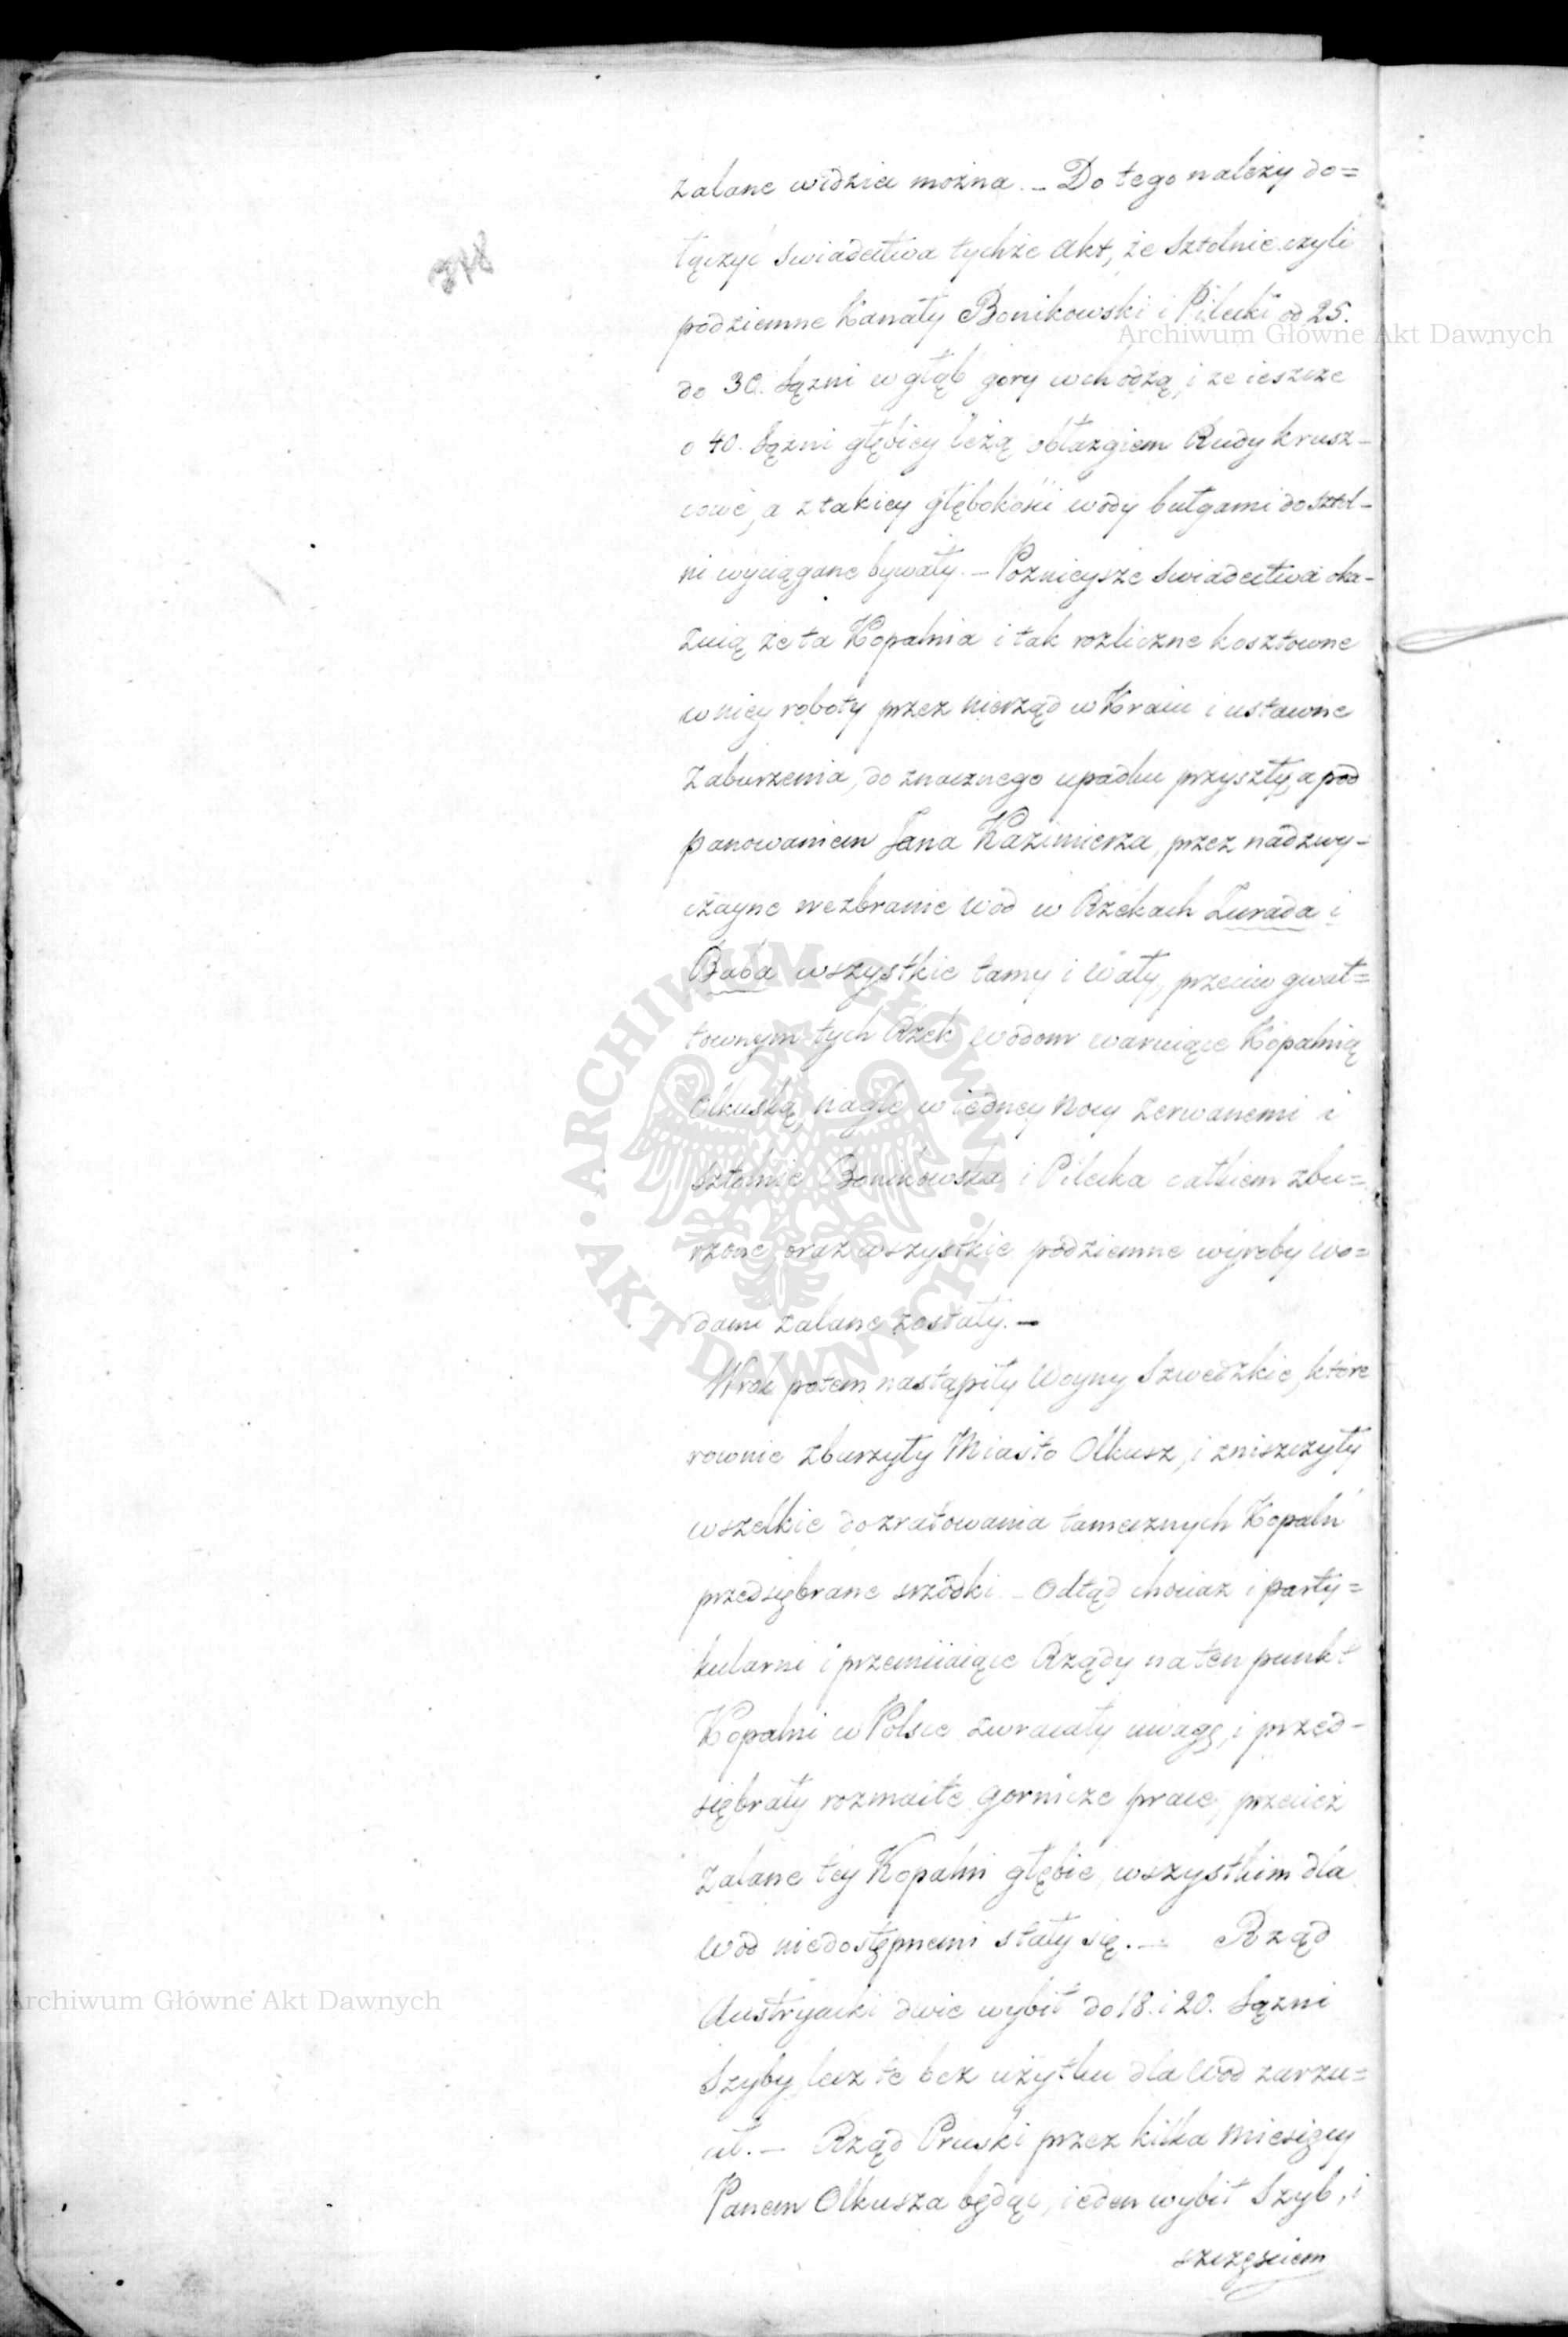 zalane widzieć można. – Do tego należy do=
łączyć swiadectwa tychże Akt, że Sztolnie czyli
podziemne Kanały Bonikowski i Pilecki od 25.
do 30. Sążni w głąb gory wchodzą, i ze ieszcze
o 40. Sążni głębiey leżą obłazgiem Rudy krusz-
cowe, a z takiey głębokości wody bulgami do sztol-
ni wyciągane bywały. – Poznieysze swiadectwa oka-
zuią że ta Kopalnia i tak rozliczne kosztowne
w niey roboty przez nierząd w Kraiu i ustawne
Zaburzenia, do znacznego upadku przyszły, a pod
panowaniem Jana Kazimierza, przez nadzwy-
czayne wezbranie wód w Rzekach Zurada i
Baba wszystkie tamy i Wały, przeciw gwał=
townym tych Rzek wodom waruiące Kopalnią
Olkuską, nagle w iedney Nocy zerwanemi i
Sztolnie Bonikowska i Pilecka całkiem zbu=
rzone, oraz wszystkie podziemne wyręby wo=
dami zalane zostały. –
W rok potem nastąpiły Woyny Szwedzkie, które
rownie zburzyły Miasto Olkusz, i zniszczyły
wszelkie do zratowania tamecznych Kopalń
przedsiębrane srzodki. – Odtąd chociaz i party=
kularni i przemiiaiące Rządy na ten punkt
Kopalni w Polsce zwracały uwagę, i przed-
siębrały rozmaite gornicze prace, przecież
Zalane tey Kopalni głębie, wszystkim dla
wód niedostępnemi stały się. – Rząd
Austryacki dwie wybił do 18. i 20. Sążni
Szyby, lecz te bez użytku dla Wod zarzu=
cił. – Rząd Pruski przez kilka miesięcy
Panem Olkusza będąc, ieden wybił Szyb, i
szczęsciem
Archiwum Główne Akt Dawnych
Archiwum Główne Akt Dawnych
ARCHIWUM GŁÓWNE · AKT DAWNYCH ·